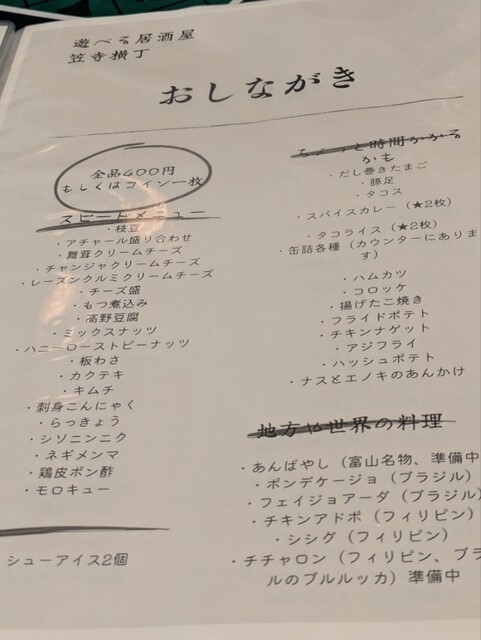 遊べる居酒屋
笠寺横丁
おしながき
全品600円
もしくはコイン一枚
スピードメニュー
・枝豆
・アチャール盛り合わせ
・舞茸クリームチーズ
・チャンジャクリームチーズ
・レーズンクルミクリームチーズ
・チーズ盛
・もつ煮込み
・高野豆腐
・ミックスナッツ
・ハニーローストピーナッツ
・板わさ
・カクテキ
・キムチ
・刺身こんにゃく
・らっきょう
・シソニンニク
・ネギメンマ
・鶏皮ポン酢
・モロキュー
シューアイス2個
ちょっと時間かかる
かも
・だし巻きたまご
・豚足
・タコス
・スパイスカレー（★2枚）
・タコライス（★2枚）
・缶詰各種（カウンターにありま
す）
・ハムカツ
・コロッケ
・揚げたこ焼き
・フライドポテト
・チキンナゲット
・アジフライ
・ハッシュポテト
・ナスとエノキのあんかけ
地方や世界の料理
・あんばやし（富山名物、準備中
・ポンデケージョ（ブラジル）
・フェイジョアーダ（ブラジル）
・チキンアドボ（フィリピン）
・シシグ（フィリピン）
・チチャロン（フィリピン、ブラ
ルのブルルッカ）準備中